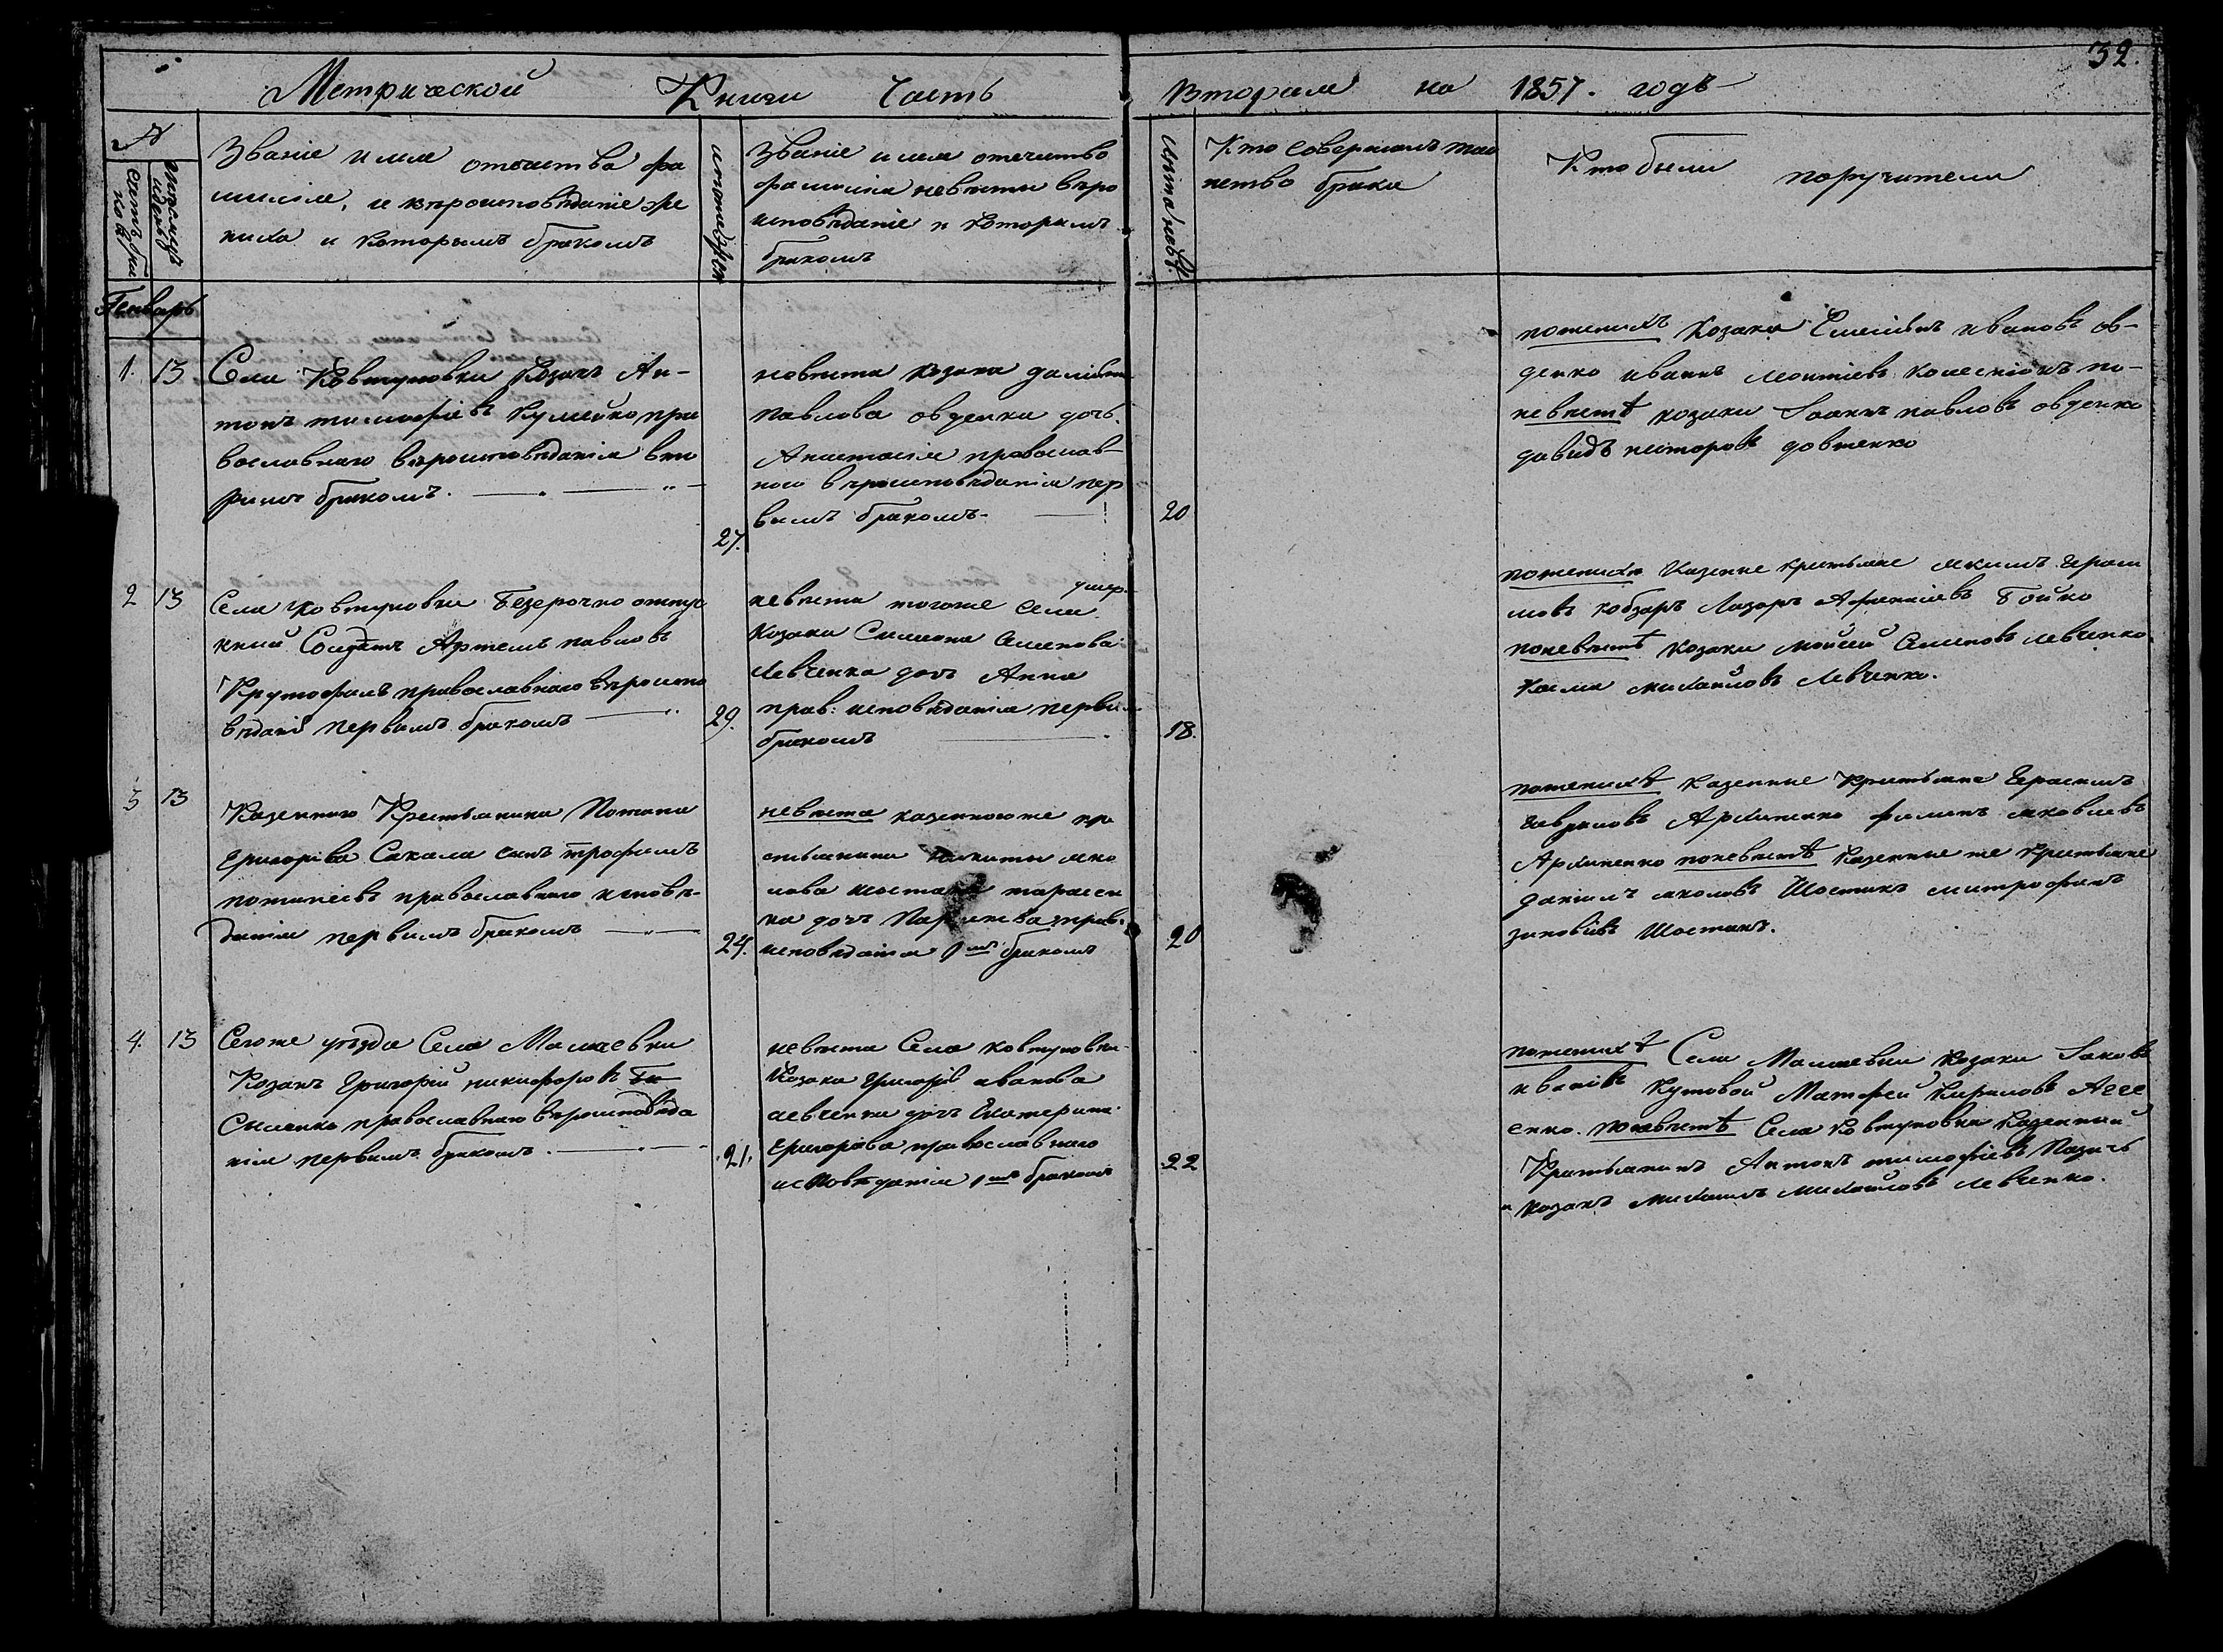 32.
Метрической Книги Часть Вторая на 1857. годъ
№
Счетъ бра
ковъ
Мѣсяцъ
и день
Званіе имя отчества фа
милія, и вѣроисповѣданіе же
ниха и которымъ бракомъ
Званіе имя отечество
фамилія невѣсты вѣро
исповѣданіе и которымъ
бракомъ
Лѣта невѣ.
Кто совершалъ таи
нство брака
Кто были поручители
Генварь
1. 13
Села Ковтуновки Козакъ Ан-
тонъ тимофіевъ пра
вославнаго вѣроисповѣданія вто
рымъ бракомъ.
27.
невѣста козака
Павлова овденка дочь
Анастасія православ-
ного вѣроисповѣданія пер
вымъ бракомъ-
20
поженихѣ Козаки Емеліянъ ивановъ ов-
денко иванъ леонтіевъ колесникъ по-
невѣстѣ козаки Іоаннъ павловъ овденко
давидъ несторовъ довженко
2 13
Села Ковтуновки Безсрочно отпус
кный Солдатъ Артемъ павловъ
православнаго вѣроиспо
вѣданія первымъ бракомъ
29.
невѣста тогоже Села умер.
Козака Симеона Семенова
Левченка дочь Анна
прав: исповѣданія первы
бракомъ
18.
поженихѣ Казенне крестьяне якимъ Гераси
мовъ кобзарь Лазарь Афанасіевъ Бойко
поневѣстѣ козаки Мойсей Семеновъ Левченко
Косма михайловъ Левченко.
3 13
Казенного Крестьянина Потапа
Григоріева Сакала сынъ трофимъ
потапіевъ православнаго исповѣ-
данія первымъ бракомъ
24.
невѣста казенногоже кре
стьянина никиты яко
влева шостака тарасен
ка дочь прав.
исповѣданія 1мъ бракомъ
20
поженихѣ казенные Крестьяне Герасимъ
Гавриловъ Архипенко филипъ яковлевъ
Архипенко поневѣстѣ Казенные же Крестьяне
даніилъ яковлевъ Шостакъ митрофанъ
зиновіевъ Шостакъ.
4. 13
Сегоже уѣзда Села Малаевки
Козакъ Григорій никифоровъ
православнаго вѣроисповѣда
нія первымъ бракомъ.
21.
невѣста Села ковтуновки
Козака Григорія иванова
левченка дочь Екатерина
Григоріева православнаго
исповѣданія 1мъ бракомъ
22
поженихѣ Села Малаевки Козаки Іаковъ
ивановъ Кутовой Матфей Кириловъ
енко. поневѣстѣ Села Ковтуновки Казенный
Крестьянинъ Антонъ тимофіевъ
и козакъ михаилъ михайловъ левченко.